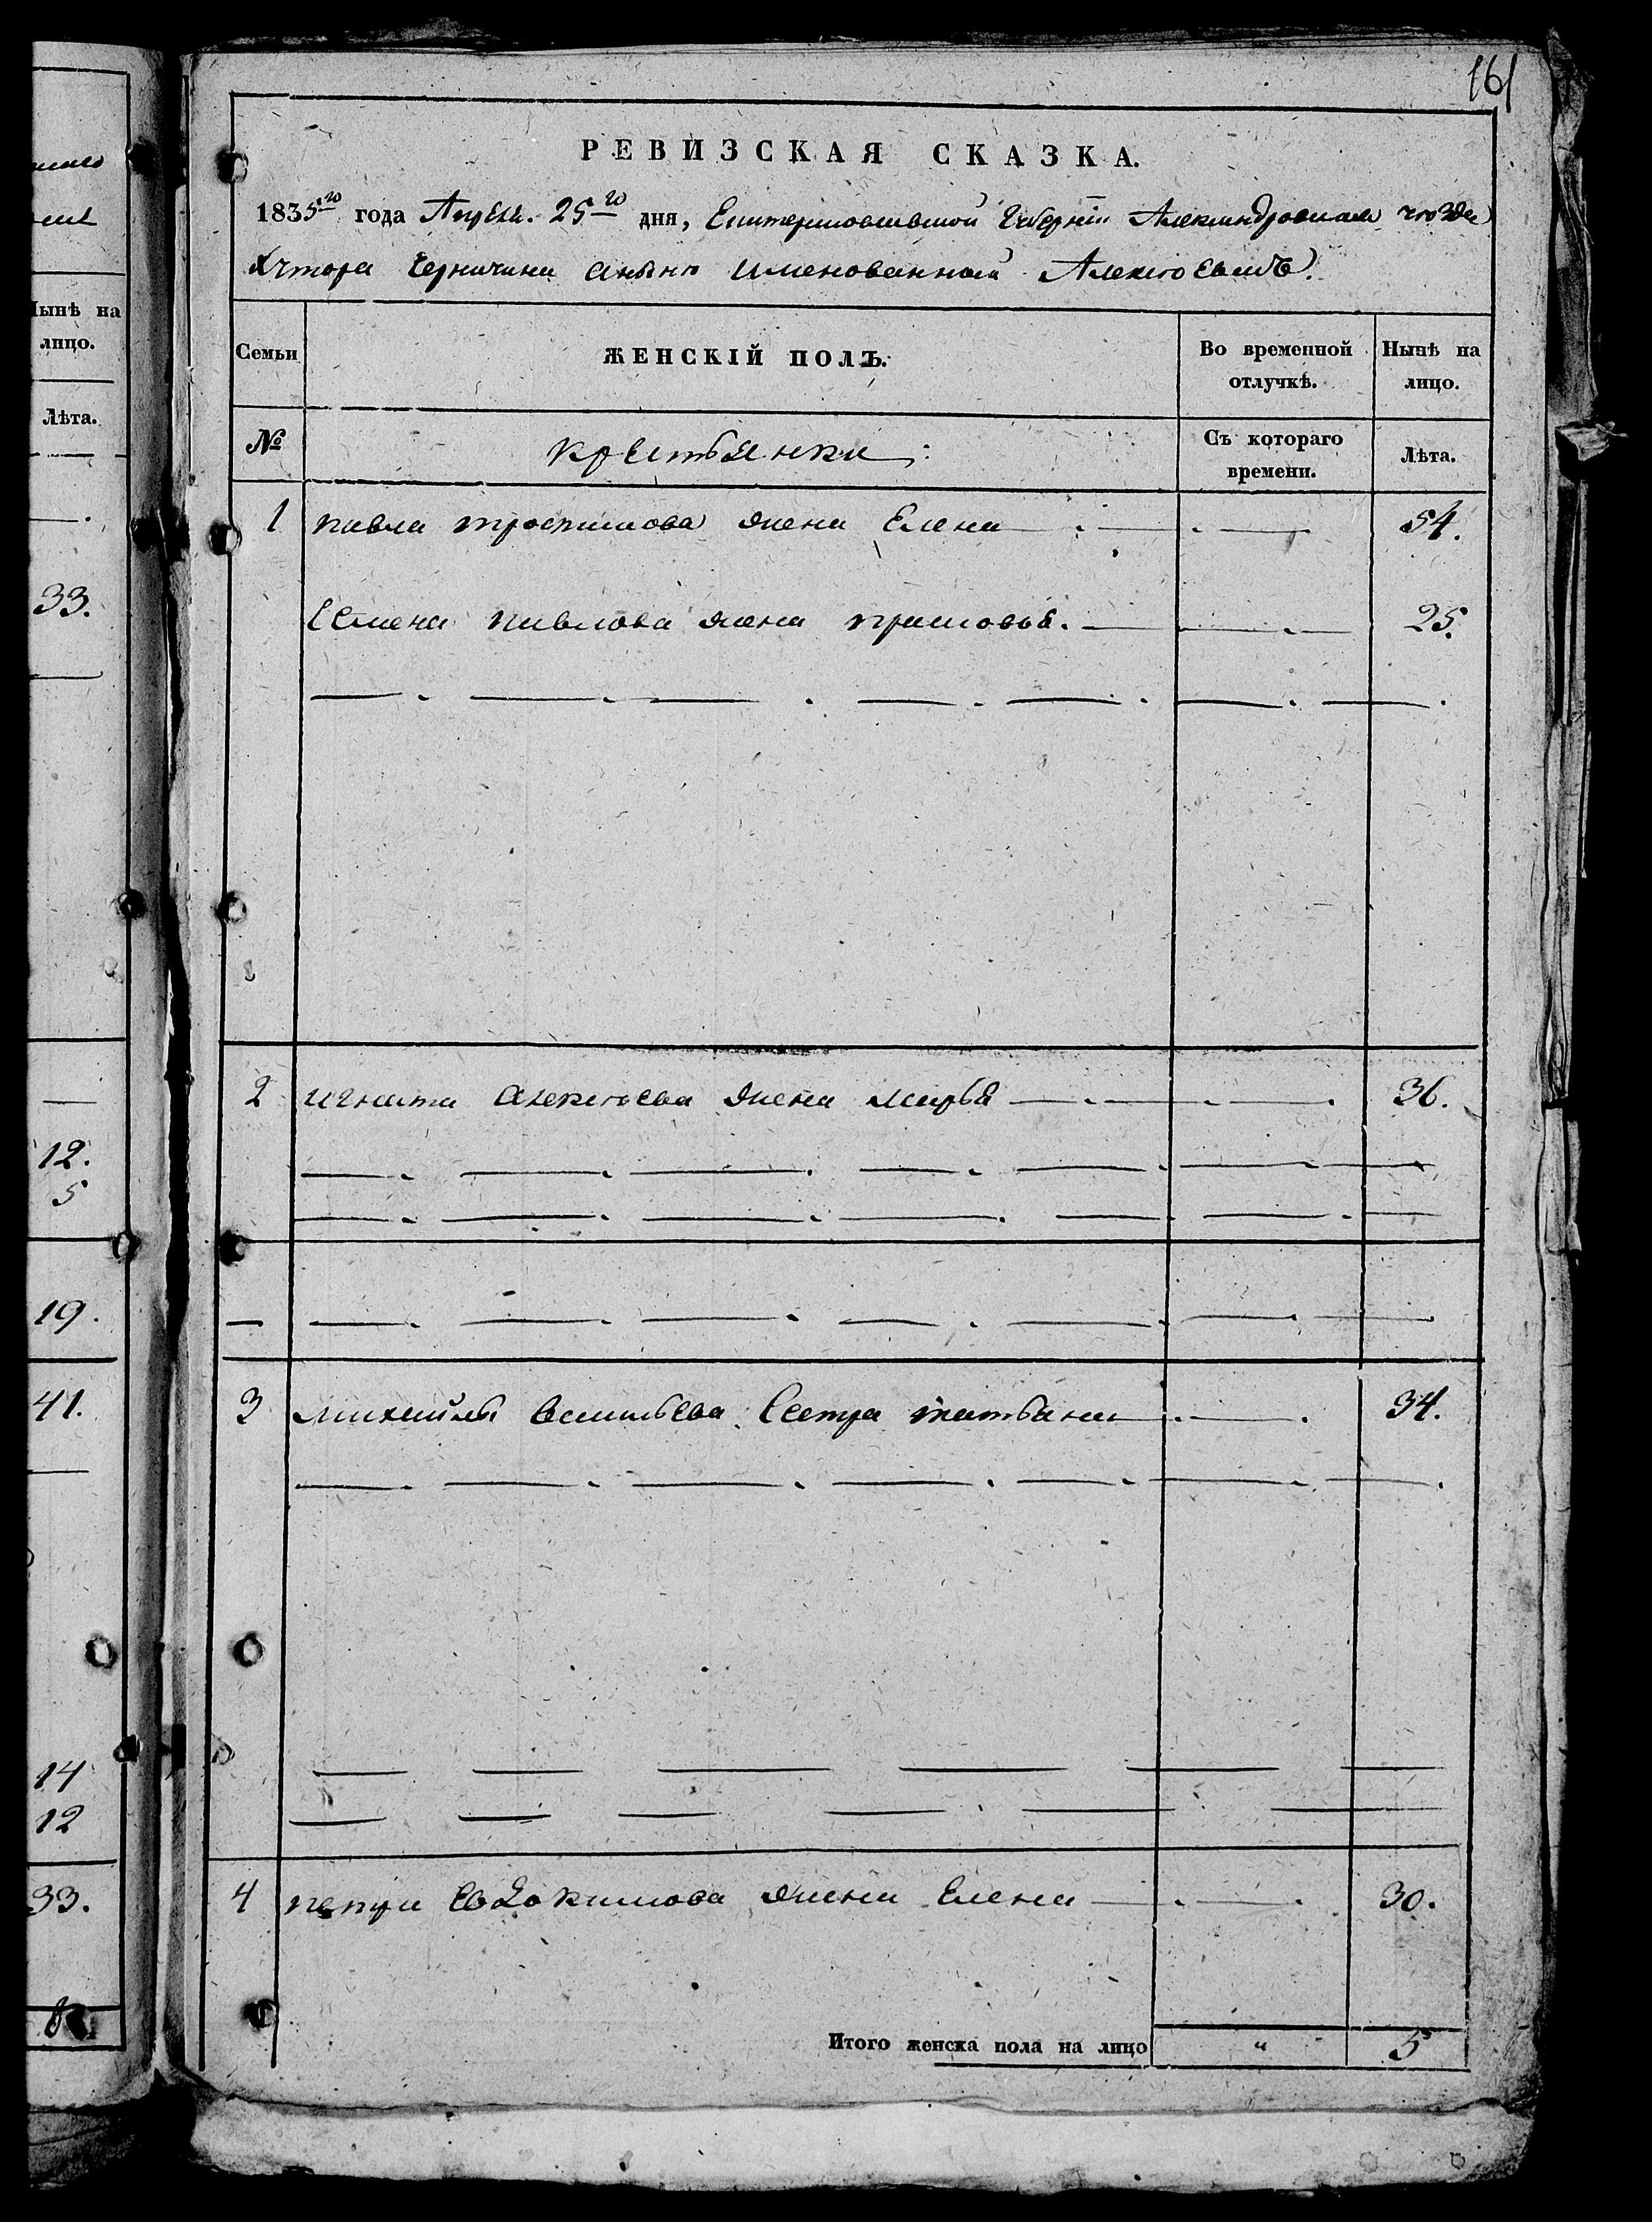 161
РЕВИЗСКАЯ СКАЗКА.
1835го года Апреля 25го дня, Екатеринославской Губернии Александровскаго уезда
Хутора Черничина аныне именованный Алексеевка.
Семьи
ЖЕНСКІЙ ПОЛЪ.
Во временной отлучкѣ.
Нынѣ на лицо.
№
крестьянки:
Съ котораго времени.
Лѣта.
1 павла трофимова жена Елена 54.
Семена павлова жена 25.
2 игната алексеева жена марья 36.
3 михайлы васильева Сестра татьяна 34.
4 петра Евдокимова жена Елена 30.
Итого женска пола на лицо " 5
Нынѣ на
лицо.
Лѣта.
33.
12.
5
19.
41.
14
12
33.